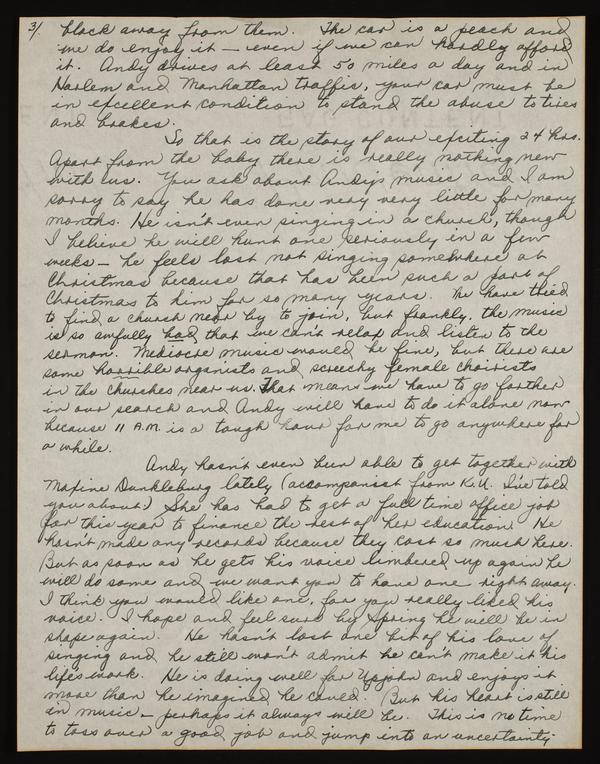 3/. block away from them. The car is a peach and
we do enjoy it — even if we can hardly afford
it. Andy drives at least 50 miles a day and in
Harlem and Manhattan traffic, your car must be
in excellent condition to stand the abuse to tires
and brakes.
So that is the story of our exciting 24 hrs.
Apart from the baby there is really nothing new
with us. You ask about Andy's music and I am
sorry to say he has done very very little for many
months. He isn't even singing in a church, though
I believe he will hunt one seriously in a few
weeks — he feels lost not singing somewhere at
Christmas because that has been such a part of
Christmas to him for so many years. We have tried
to find a church near by to join, but frankly, the music
is so awfully bad that we can't relax and listen to the
sermon. Mediocre music would be fine, but there are
some horrible organists and screechy female choirists
in the churches near us. That means we have to go farther
in our search and Andy will have to do it alone now
because 11 A.M. is a tough hour for me to go anywhere for
a while.
Andy hasn't even been able to get together with
Maxine Dunkleburg lately (accompanist from K.U. I've told
you about) She has had to get a full time office job
for this year to finance the rest of her education. He
hasn't made any records because they cost so much here.
But as soon as he gets his voice limbered up again he
will do some and we want you to have one right away.
I think you would like one, for you really liked his
voice. I hope and feel sure by Spring he will be in
shape again. He hasn't lost one bit of his love of
singing and he still won't admit he can't make it his
life's work. He is doing well for Upjohn and enjoys it
more than he imagined he could. But his heart is still
in music — perhaps it always will be. This is no time
to toss over a good job and jump into an uncertainty.